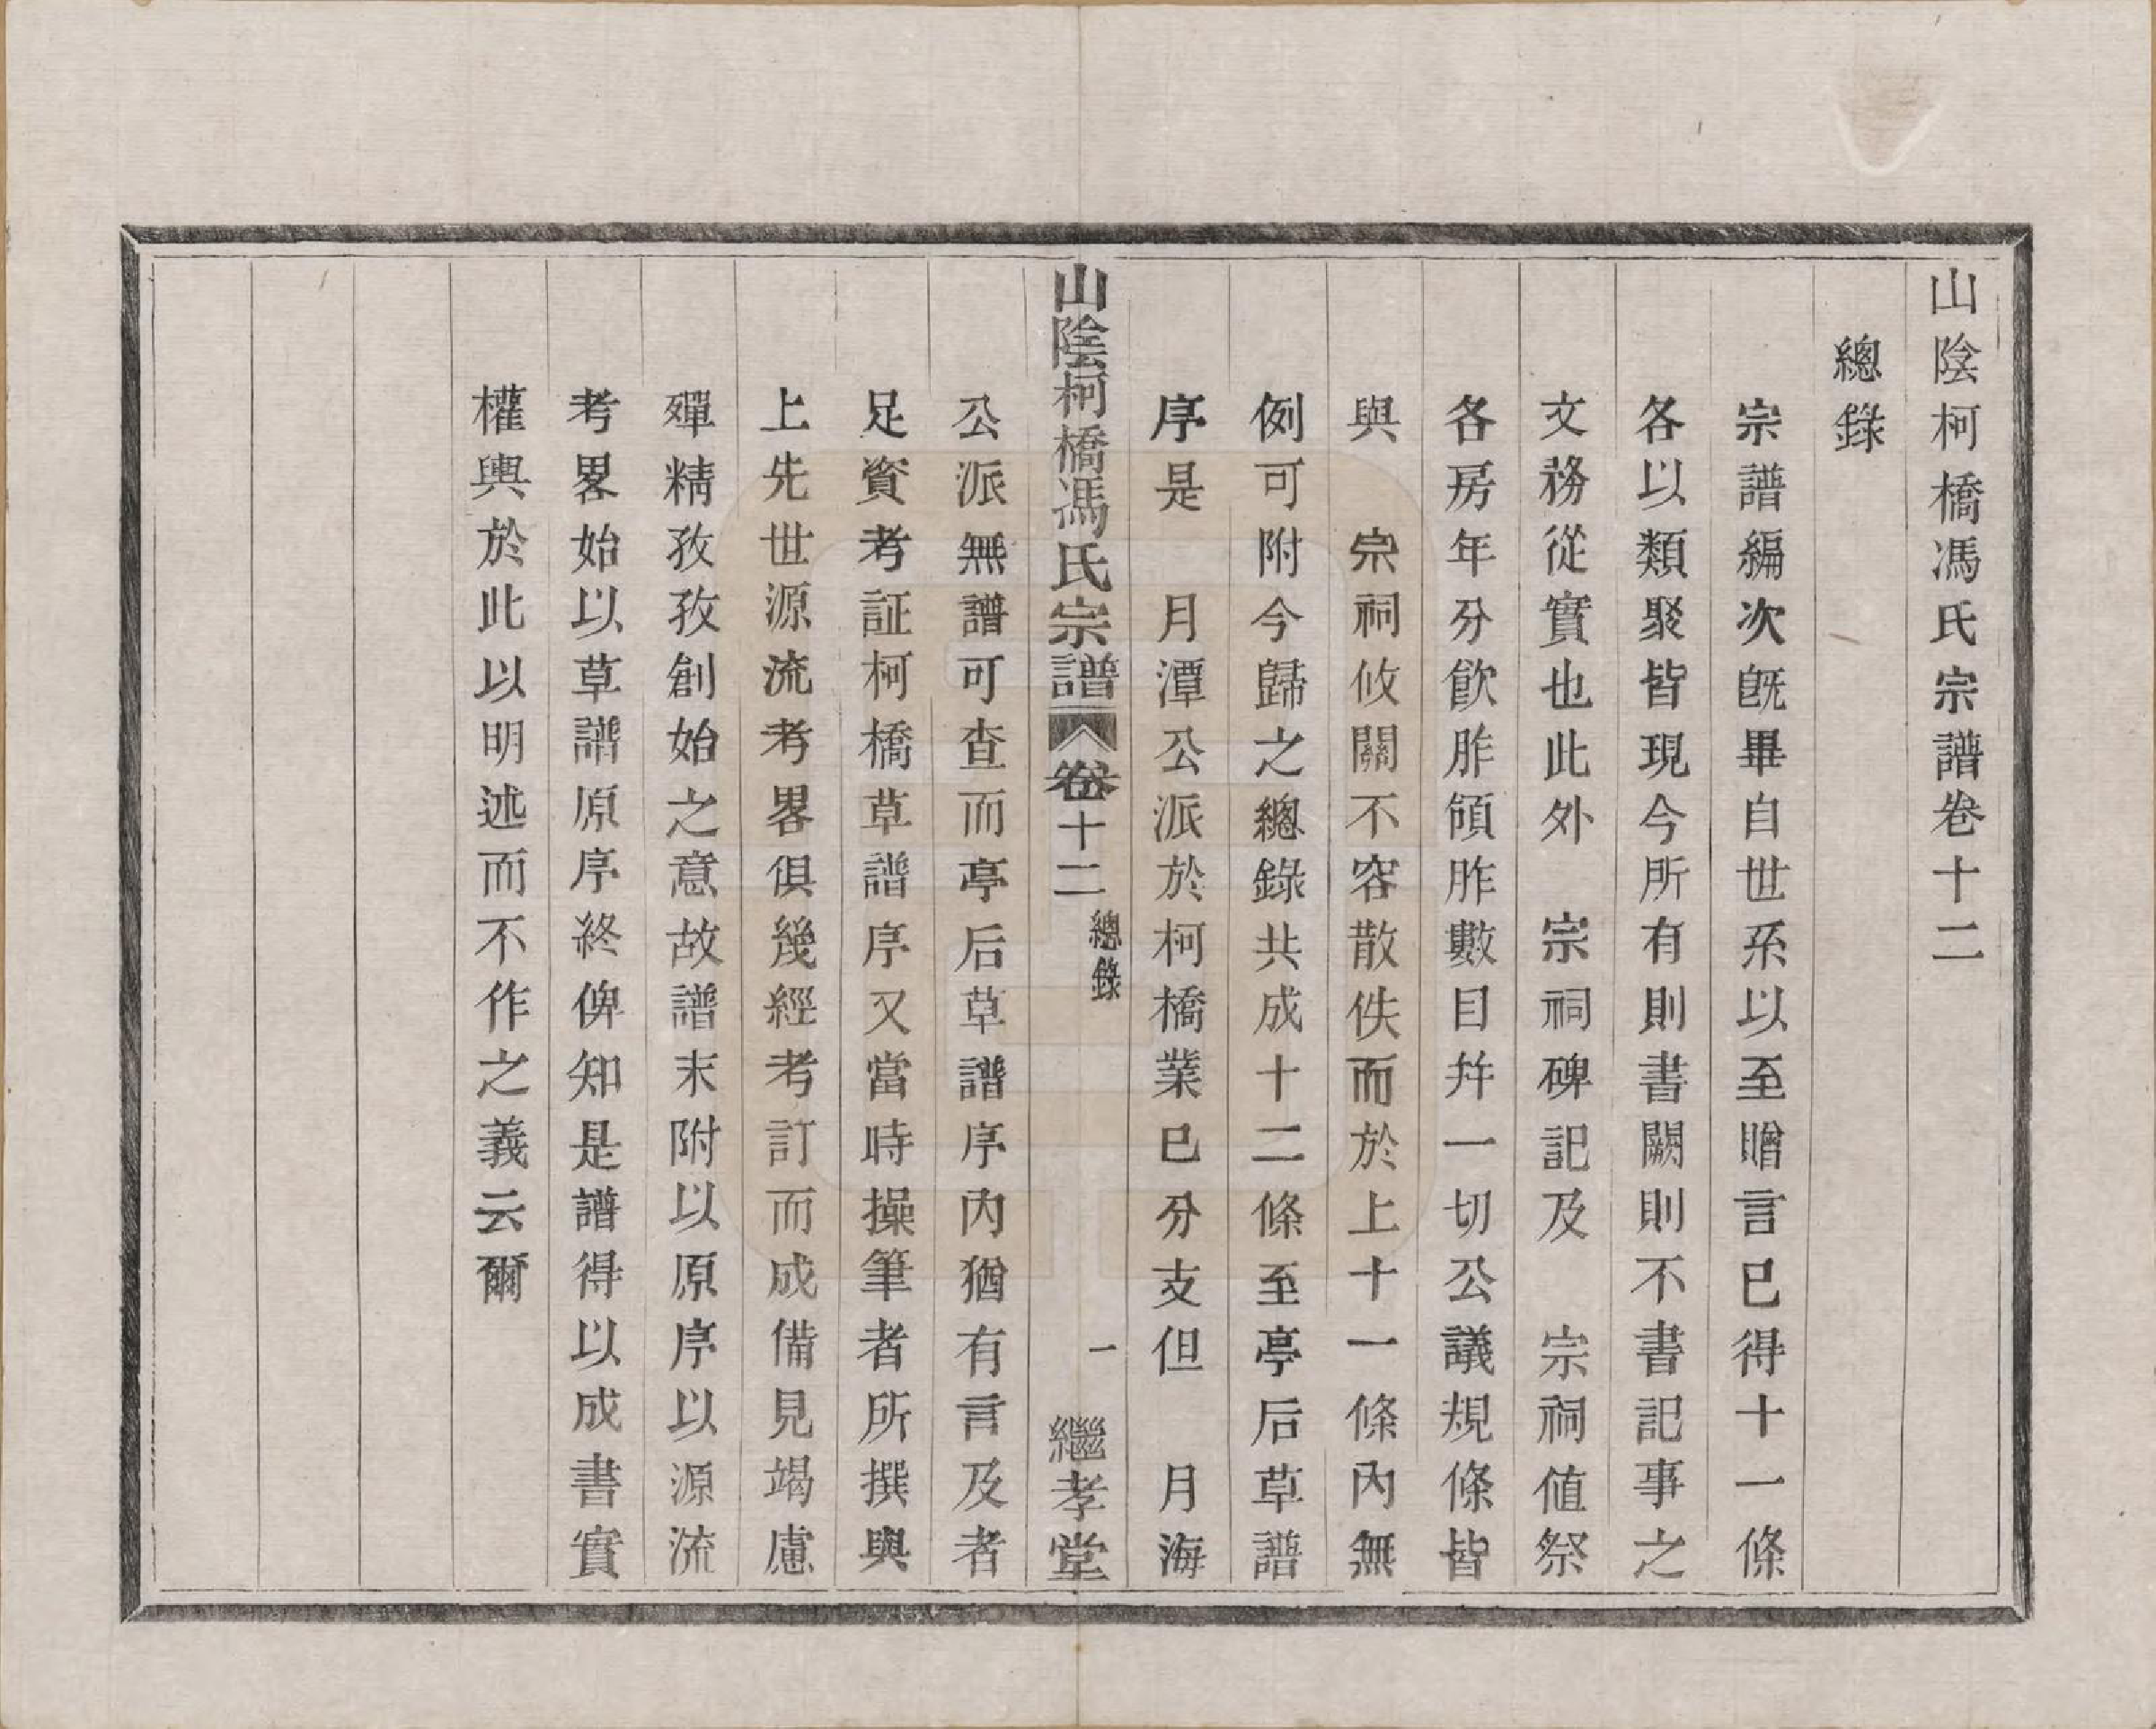 山陰柯橋馮氏宗譜卷十二
總錄
宗譜編次旣畢自世系以至贈言已得十一條
各以類聚皆現今所有則書闕則不書記事之
文務從實也此外　宗祠碑記及　宗祠値祭
各房年分飮胙頒胙數目幷一切公議規條皆
與　宗祠攸關不容散佚而於上十一條內無
例可附今歸之總錄共成十二條至亭后草譜
序是　月潭公派於柯橋業已分支但　月海
山陰柯橋馮氏宗譜　卷十二　總錄　一　繼孝堂
公派無譜可查而亭后草譜序內猶有言及者
足資考証柯橋草譜序又當時操筆者所撰與
上先世源流考畧俱幾經考訂而成備見竭慮
殫精孜孜創始之意故譜末附以原序以源流
考畧始以草譜原序終俾知是譜得以成書實
權輿於此以明述而不作之義云爾